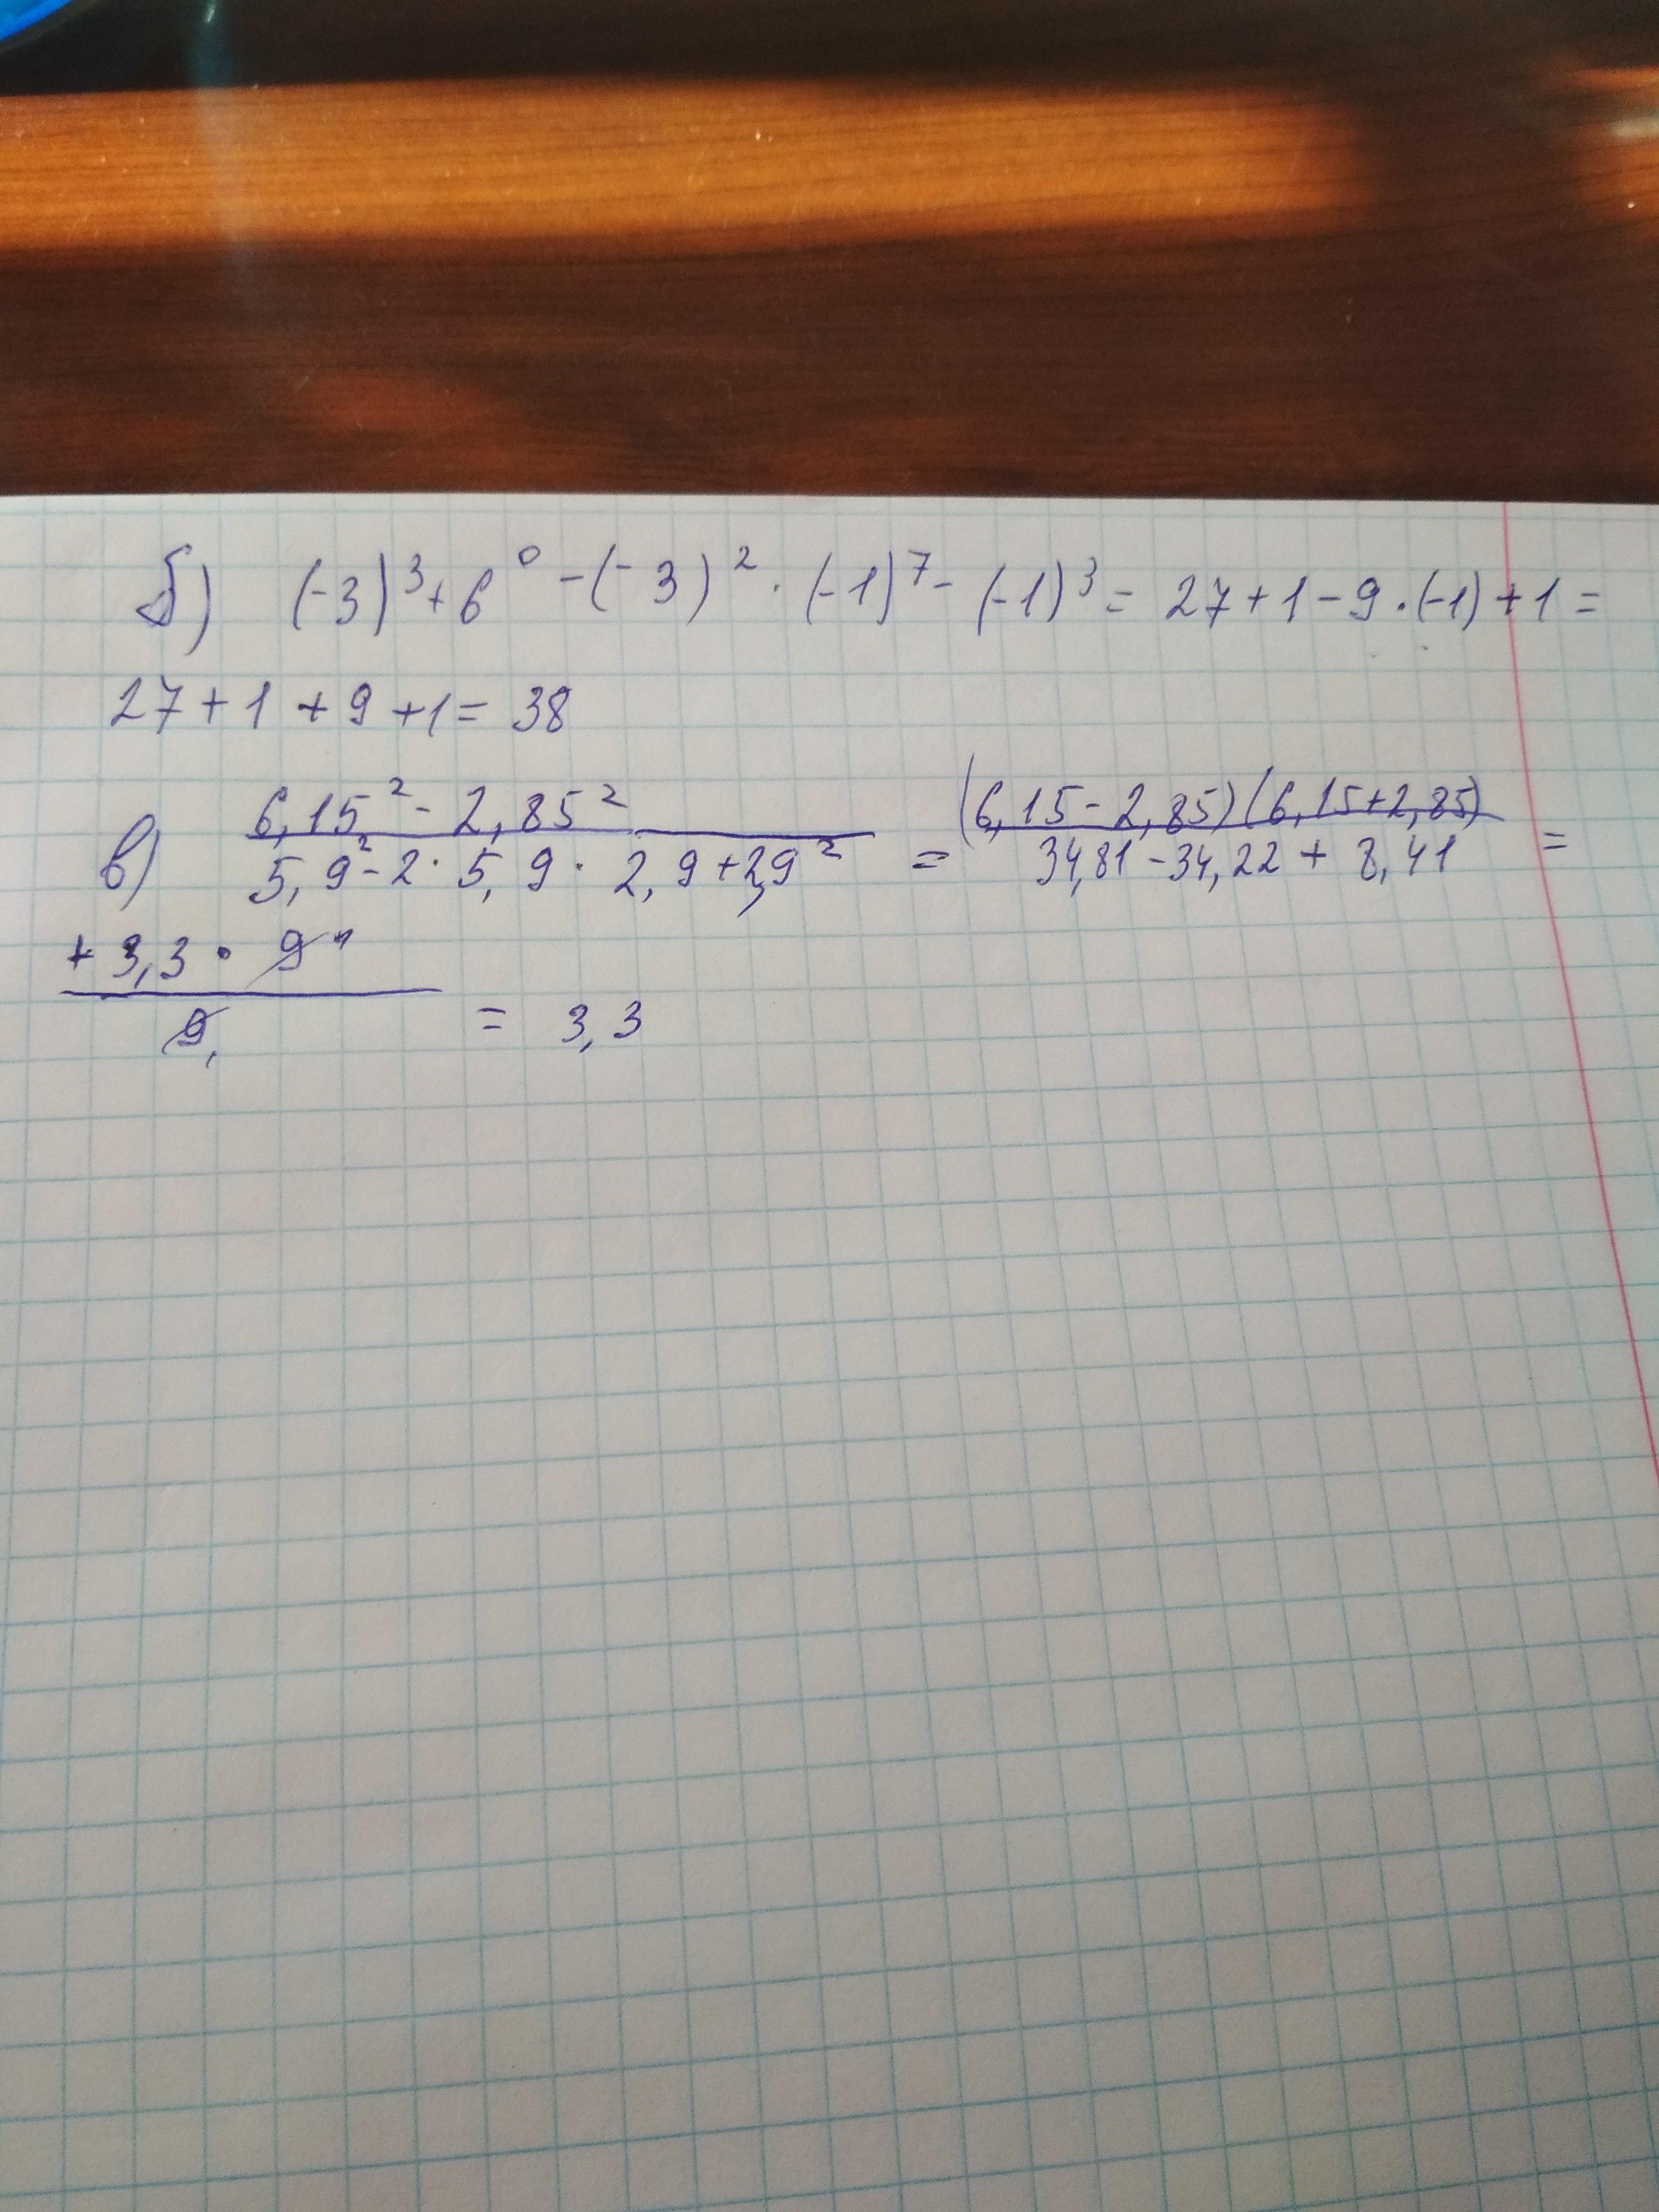 б) (-3)³+6⁰-(-3)²·(-1)⁷-(-1)³=27+1-9·(-1)+1=
27+1+9+1=38
в) (6,15²-2,85²)/(5,9²-2·5,9·2,9+2,9²)=((6,15-2,85)(6,15+2,85))/(34,81-34,22+8,41)=
(3,3·9)/9=3,3